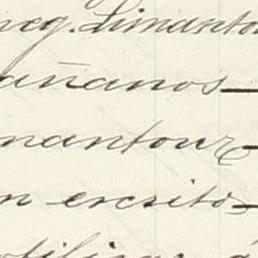 ncg. Limanto
añanos
mantour
n escrito